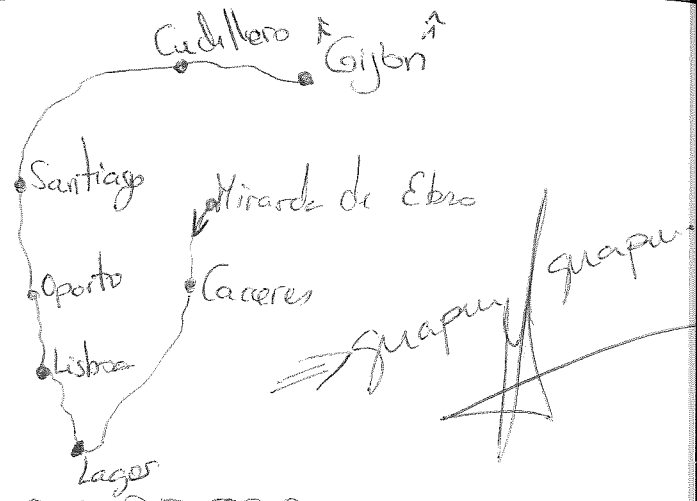 Cudillero
"Gijón"
Santiago
Miranda de Ebro
Oporto
Caceres
Lisboa
guapuy guapu
Lagos